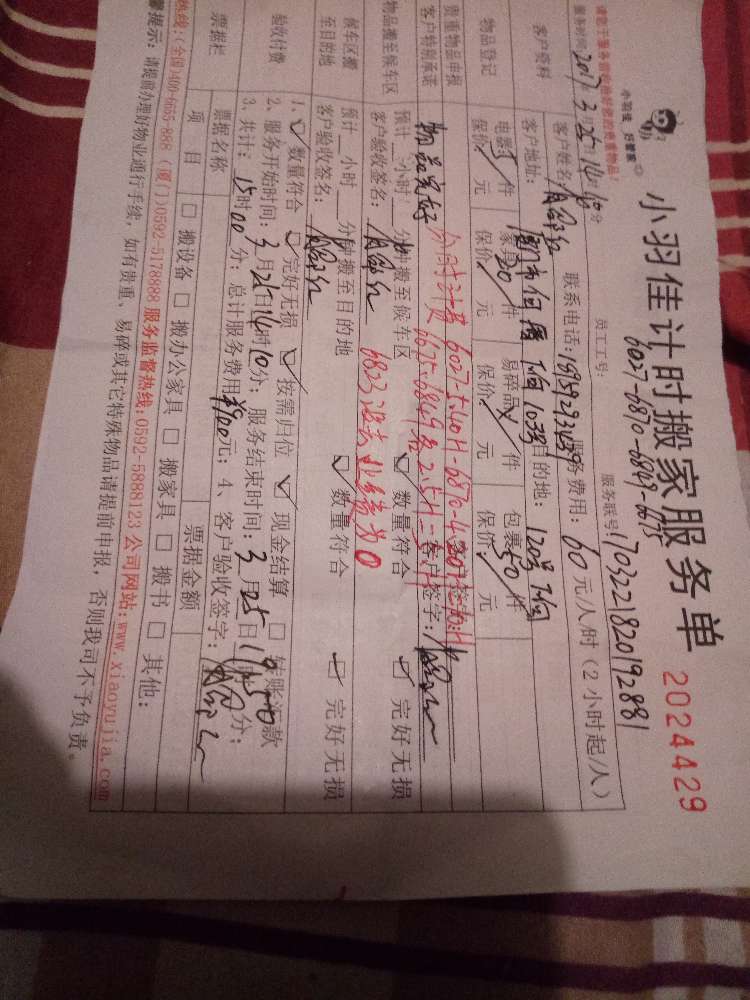 小羽佳 好管家
小羽佳计时搬家服务单
2024429
员工工号:
6027-6870-6849-6675
服务账号:170322182019288
服务时间:2017年3月25日14时10分
客户资料
客户姓名:
联系电话:
服务费用:60元/人/时(2小时起/人)
客户地址:
目的地:120号
物品登记
电器 件
家具20件
易碎品 件
包裹50件
保价 元
保价 元
保价 元
保价 元
贵重物品申报
客户特别承诺
物品完好
分时计费 6027-5.4H-6870-4.
6675-6849各2.5H=
客户签字:
物品搬至候车区
预计 小时 分钟搬至候车区
数量符合
完好无损
客户验收签名:
6823
业绩为0
候车区搬至目的地
预计 小时 分钟搬至目的地
数量符合
完好无损
客户验收签名:
验收付费
1、数量符合 完好无损 按需归位 现金结算 转账汇款
2、服务开始时间:3月25日14时10分;服务结束时间:3月25日19时 分;
3、共计:15时00分;总计服务费用¥900元;4、客户验收签字:
票据栏
票据名称
票据金额
项目
搬设备 搬办公家具 搬家具 搬书 其他:
热线:(全国)400-6655-888 (厦门)0592-5178888 服务监督热线:0592-5888123 公司网站:www.xiaoyujia.com
馨提示:请提前办理好物业通行手续,如有贵重、易碎或其它特殊物品请提前申报,否则我司不予负责。